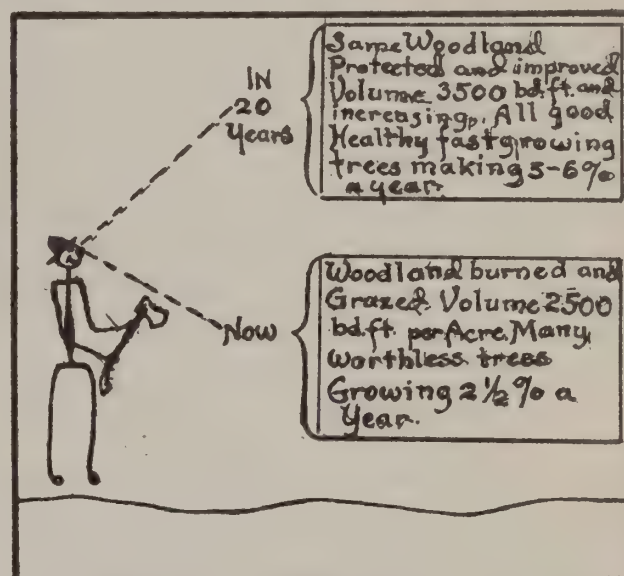 IN
20
Years
Same Woodland
Protected and improved
Volume 3500 bd.ft. and
increasing. All good
Healthy fast growing
trees making 5-6%
a year.
Now
Woodland burned and
Grazed. Volume 2500
bd.ft. per Acre. Many
worthless trees
Growing 2½% a
Year.